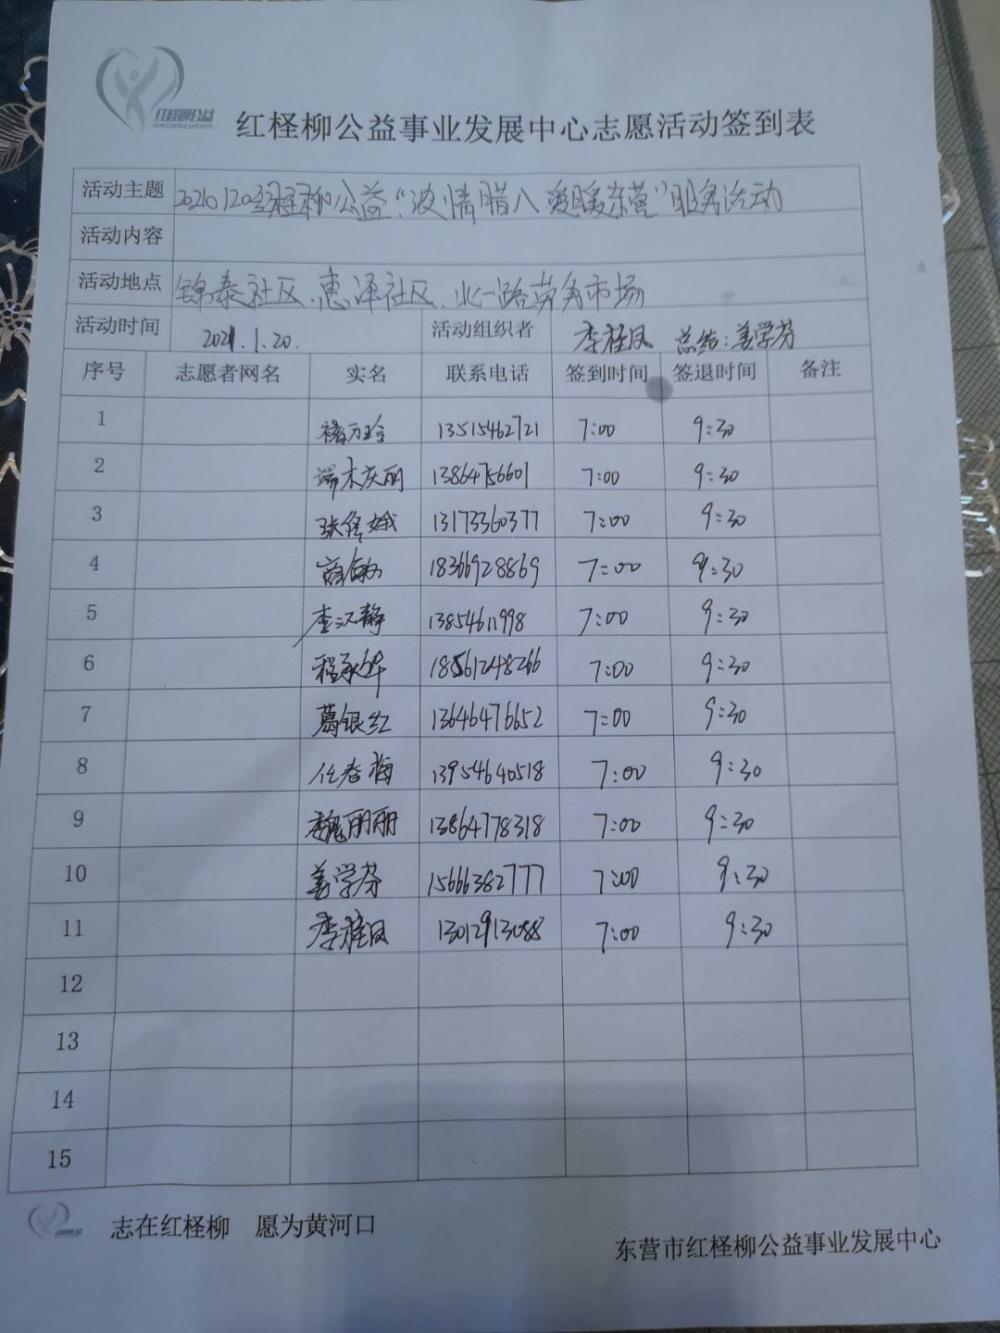 红柽柳公益
红柽柳公益事业发展中心志愿活动签到表
活动主题 20210120红柽柳公益“浓情腊八 爱暖东营”服务活动
活动内容
活动地点 锦泰社区、惠泽社区、北一路劳务市场
活动时间 2021.1.20. 活动组织者 李桂凤 总结:姜学芬
序号 志愿者网名 实名 联系电话 签到时间 签退时间 备注
1 褚万玲 13515462721 7:00 9:30
2 端木庆丽 13864756601 7:00 9:30
3 张俊娥 13173360377 7:00 9:30
4 18366928869 7:00 9:30
5 李汉静 13854611998 7:00 9:30
6 程承华 18561248266 7:00 9:30
7 葛银红 13646476652 7:00 9:30
8 任春梅 13954640518 7:00 9:30
9 魏丽丽 13864778318 7:00 9:30
10 姜学芬 15666382777 7:00 9:30
11 李桂凤 13012913088 7:00 9:30
12
13
14
15
志在红柽柳 愿为黄河口
东营市红柽柳公益事业发展中心